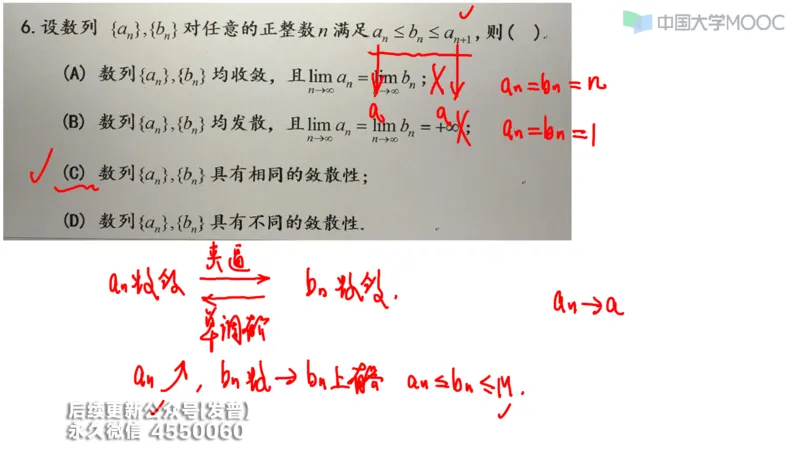 中国大学MOOC
6.设数列 {aₙ},{bₙ} 对任意的正整数 n 满足 aₙ ≤ bₙ ≤ aₙ₊₁ ,则( ).
(A) 数列{aₙ},{bₙ} 均收敛, 且 lim aₙ = lim bₙ ;
n→∞ n→∞
aₙ=bₙ=n
a a
(B) 数列{aₙ},{bₙ} 均发散, 且 lim aₙ = lim bₙ = +∞ ;
n→∞ n→∞
aₙ=bₙ=1
(C) 数列{aₙ},{bₙ} 具有相同的敛散性;
(D) 数列{aₙ},{bₙ} 具有不同的敛散性.
夹逼
aₙ收敛 bₙ收敛.
aₙ→a
单调有界
aₙ↗, bₙ收敛→bₙ上有界 aₙ≤bₙ≤M.
后续更新公众号(发普)
永久微信 4550060